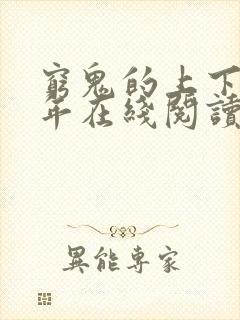 窮鬼的上下
年在綫閱讀
異能專家